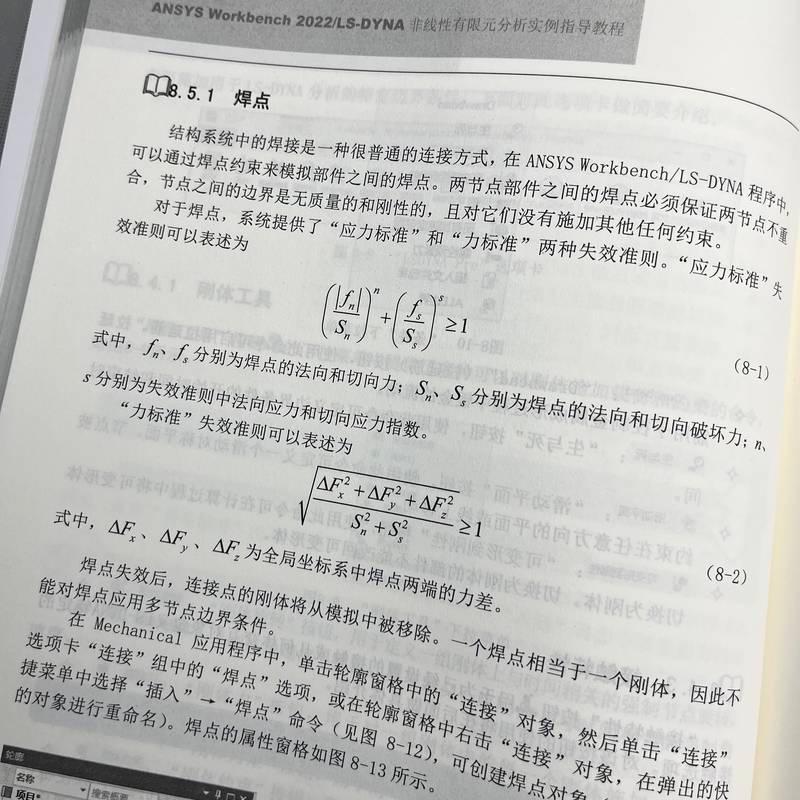 ANSYS Workbench 2022/LS-DYNA 非线性有限元分析实例指导教程
8.5.1 焊点
结构系统中的焊接是一种很普通的连接方式，在 ANSYS Workbench/LS-DYNA 程序中，
可以通过焊点约束来模拟部件之间的焊点。两节点部件之间的焊点必须保证两节点不重
合，节点之间的边界是无质量的和刚性的，且对它们没有施加其他任何约束。
对于焊点，系统提供了“应力标准”和“力标准”两种失效准则。“应力标准”失
效准则可以表述为
(|fₙ|/Sₙ)ⁿ + (fₛ/Sₛ)ˢ ≥ 1 (8-1)
式中，fₙ、fₛ 分别为焊点的法向和切向力；Sₙ、Sₛ 分别为焊点的法向和切向破坏力；n、
s 分别为失效准则中法向应力和切向应力指数。
“力标准”失效准则可以表述为
√((ΔFₓ² + ΔF_y² + ΔF_z²)/(Sₙ² + Sₛ²)) ≥ 1 (8-2)
式中，ΔFₓ、ΔF_y、ΔF_z 为全局坐标系中焊点两端的力差。
焊点失效后，连接点的刚体将从模拟中被移除。一个焊点相当于一个刚体，因此不
能对焊点应用多节点边界条件。
在 Mechanical 应用程序中，单击轮廓窗格中的“连接”对象，然后单击“连接”
选项卡“连接”组中的“焊点”选项，或在轮廓窗格中右击“连接”对象，在弹出的快
捷菜单中选择“插入”→“焊点”命令（见图 8-12），可创建焊点对象
的对象进行重命名）。焊点的属性窗格如图 8-13 所示。
轮廓
名称 搜索概要
项目*